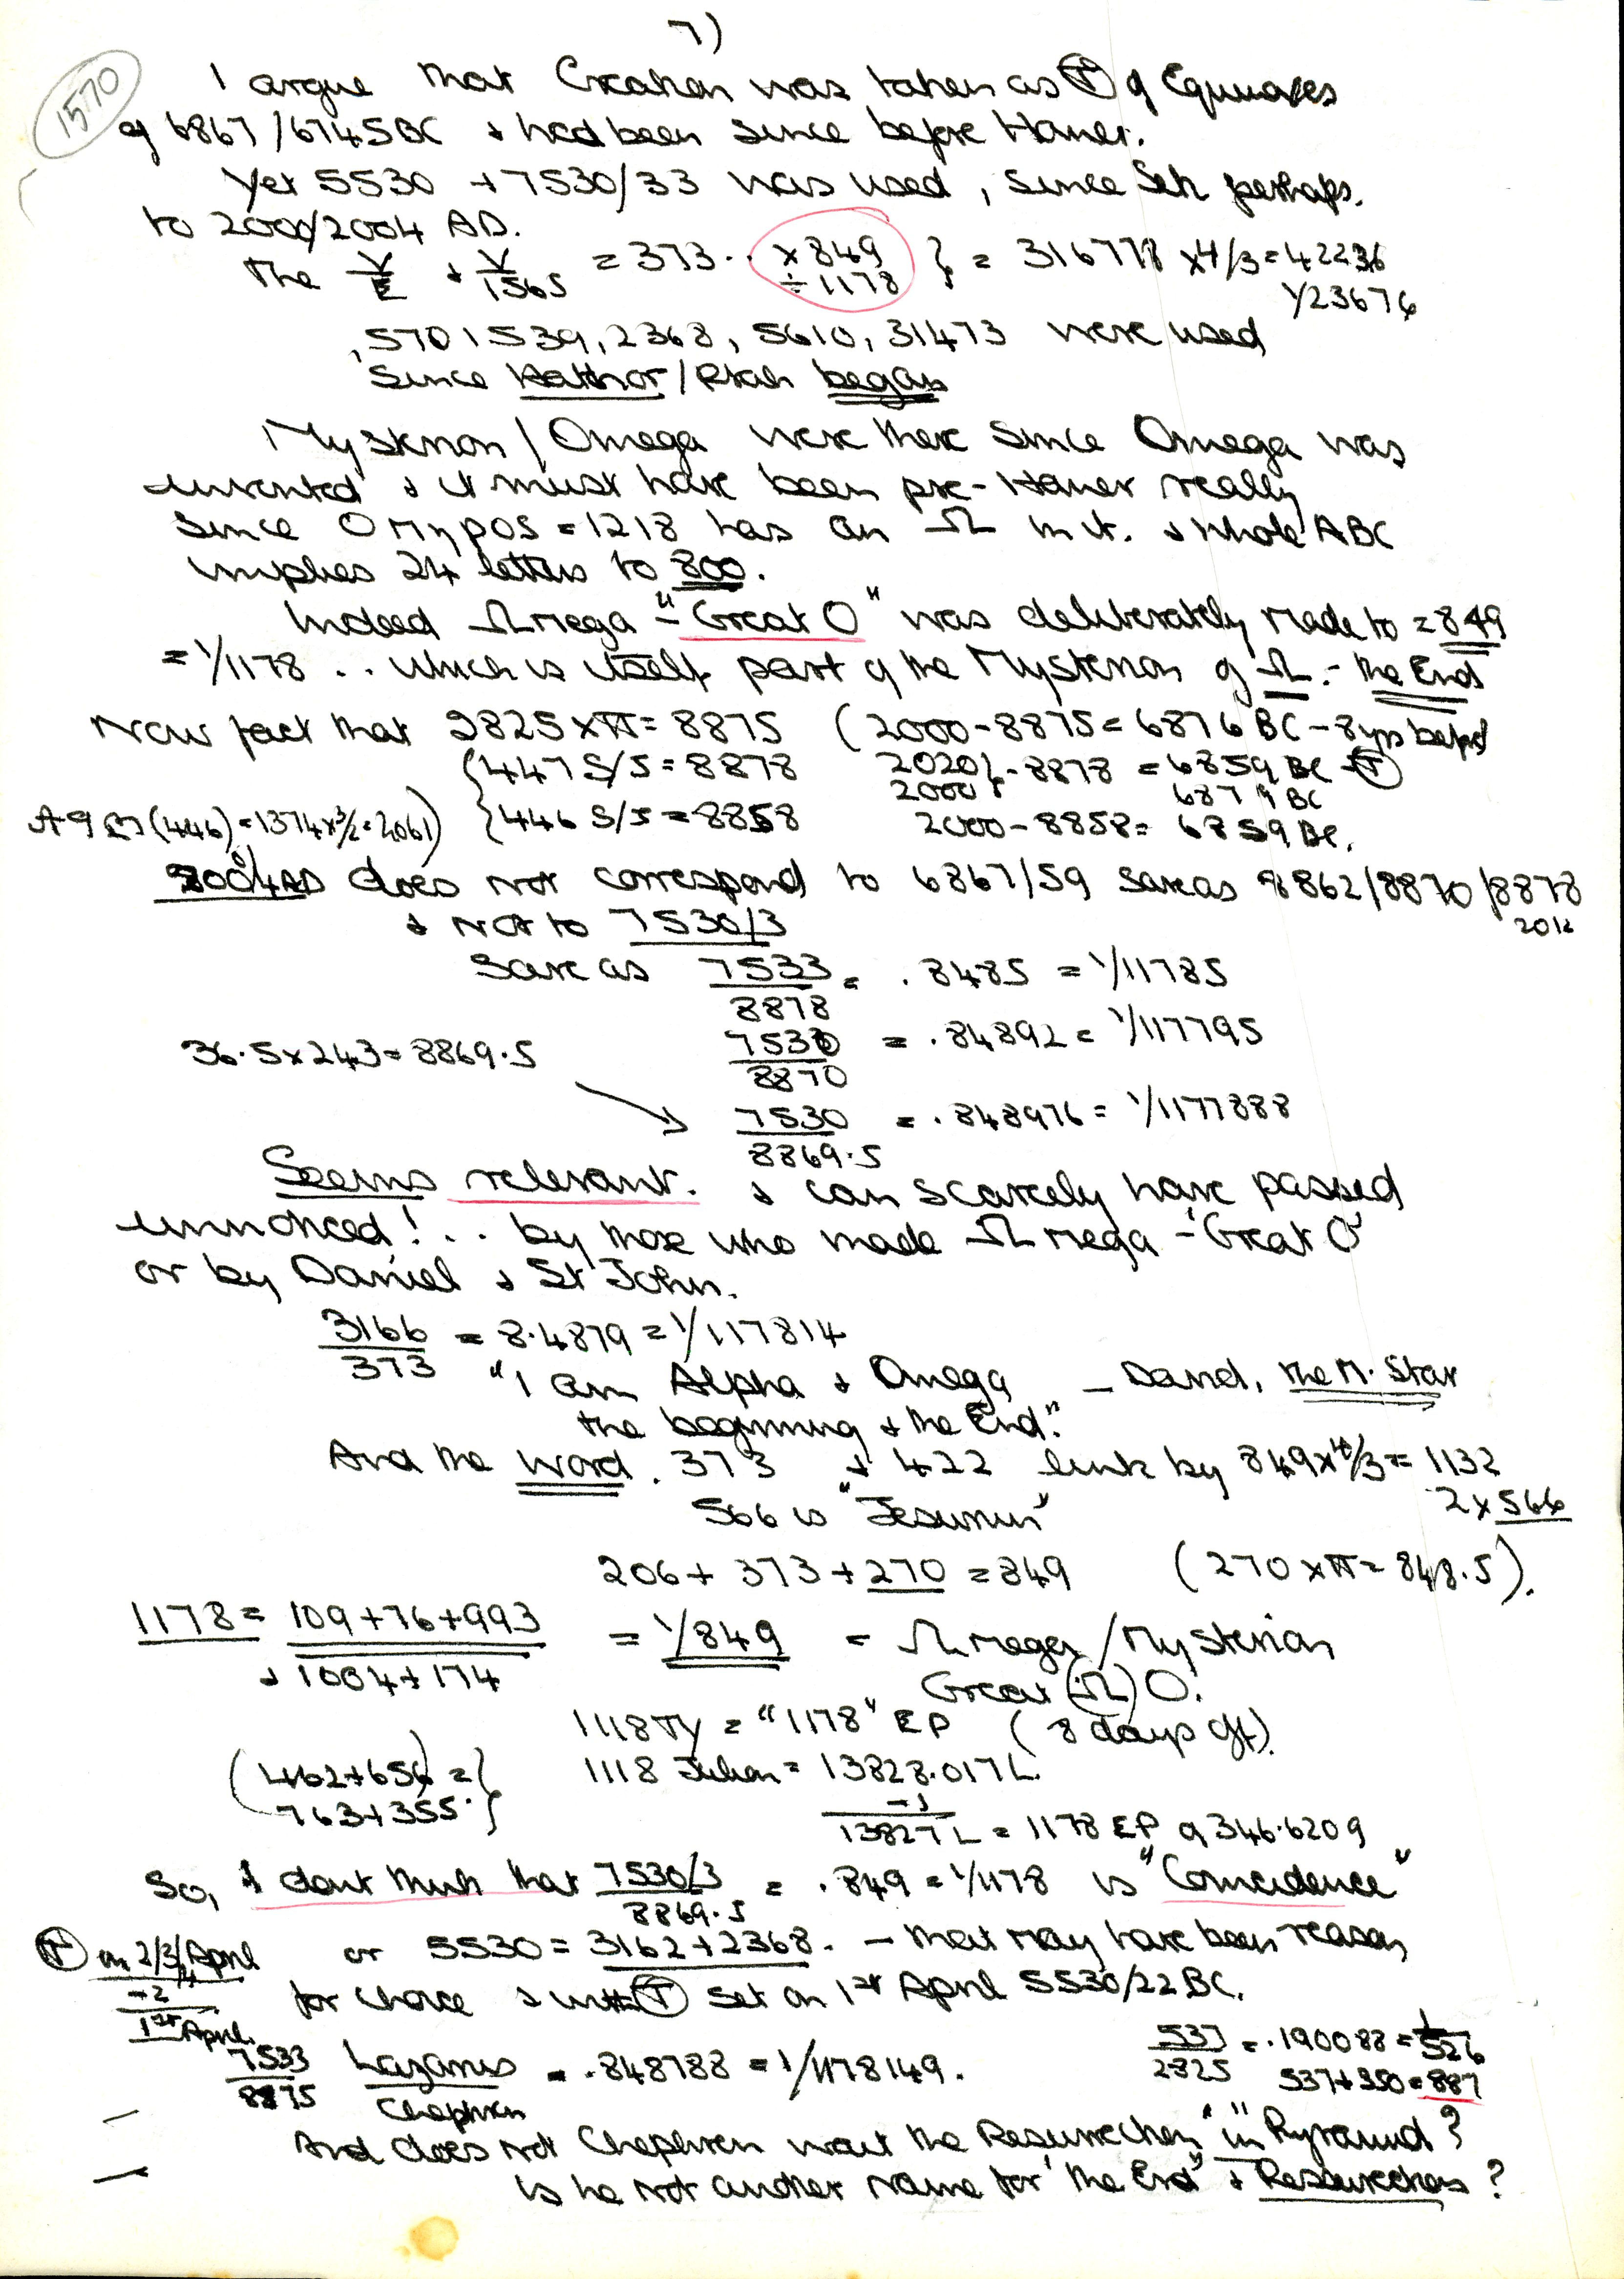 7)
1570
I argue that Creation was taken as (T) of Equinoxes
of 6867/6745BC & had been since before Homer.
Yet 5530 + 7530/33 was used, since Seti perhaps.
to 2000/2004 AD.
The V/E & V/1565 = 373.. ×849 ÷1178 } = 316778 ×4/3 = 42236
1/23676
, 570 1539, 2368, 5610, 31473 were used
Since Hathor/Ptah began
Mysterion / Omega were there since Omega was
invented & it must have been pre-Homer really
since Omnpos = 1218 has an Ω in it. & whole ABC
implies 24 letters to 800.
Indeed Ωmega - "Great O" was deliberately made to = 849
= 1/1178 .. which is itself part of the Mysterion of Ω. - the End
Now fact that 2825 × π = 8875 (2000 - 8875 = 6876 BC - 8yrs before
{447 S/S = 8878 2020 } - 8878 = 6859 BC (T)
2000 6879 BC
(446) = 1374 × 3/2 = 2061) {446 S/S = 8858 2000 - 8858 = 6859 BC.
2004AD does not correspond to 6867/59 save as 8862/8870/8878
2012
& not to 7530/3
Save as 7533/8878 = .8485 = 1/11785
36.5 × 243 = 8869.5 7530/8870 = .84892 = 1/117795
7530/8869.5 = .848976 = 1/1177888
Seems relevant. & can scarcely have passed
unnoticed! .. by those who made Ωmega - Great O
or by Daniel & St John.
3166/373 = 8.4879 = 1/117814
"I am Alpha & Omega - David, the M. Star
the beginning & the End."
And the Word. 373 & 422 link by 849 × 4/3 = 1132
2 × 566
566 is "Jesunun"
206 + 373 + 270 = 849 (270 × π = 848.5).
1178 = 109 + 76 + 993 = 1/849 = Ωmega/Mysterion
& 1004 + 174 Great (Ω) O.
1118 TY = "1178" EP (8 days off).
(462 + 656) = } 1118 Julian = 13828.017 L.
763 + 355 -1
13827 L = 1178 EP of 346.6209
So, I dont think that 7530/3 / 8869.5 = .849 = 1/1178 is "Coincidence"
(T) on 2/3/4 April or 5530 = 3162 + 2368. - that may have been reason
-2 for choice & with (T) set on 1st April 5530/22 BC.
1st April.
7533/8875 Lazarus = .848788 = 1/1178149. 537/2825 = .190088 = 1/526
Chephren 537 + 350 = 887
And does not Chephren wait the Resurrection "in" Pyramid?
Is he not another name for "the End" & Resurrection?